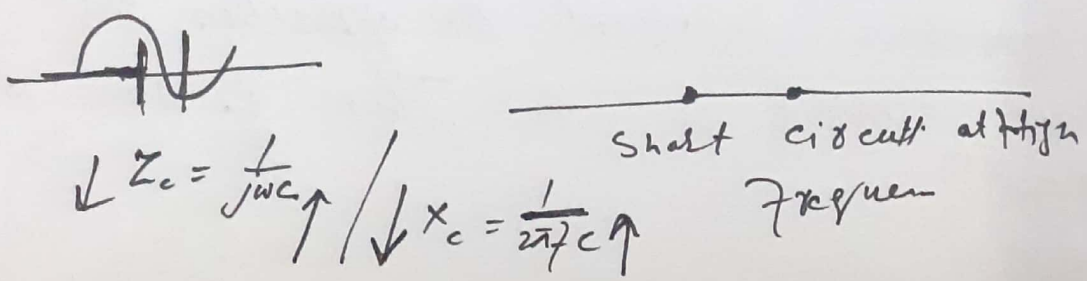 ↓ Z_c = 1/jωc ↑ / ↓ X_c = 1/2πfc ↑
Short circuit at High
Frequen